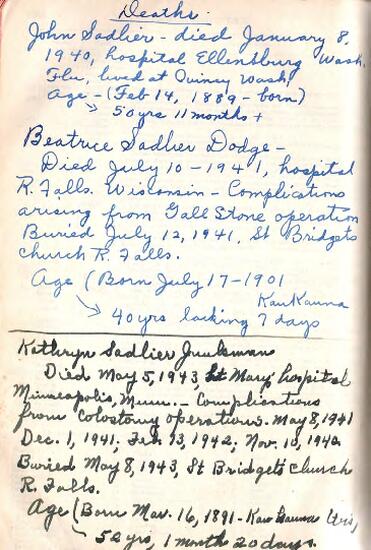 Deaths.
John Sadlier - died January 8,
1940, hospital Ellensburg Wash.
Flu, lived at Quincy Wash.
Age - (Feb 14, 1889 - born)
50 yrs 11 months +
Beatrice Sadlier Dodge -
Died July 10 - 1941, hospital
R. Falls. Wisconsin - Complications
arising from Gall Stone operation
Buried July 12, 1941, St Bridgets
church R. Falls.
Age (Born July 17 - 1901
KauKauna
40 yrs lacking 7 days
Kathryn Sadlier
Died May 5, 1943, St Mary's hospital
Minneapolis, Minn. - Complications
from Colostomy operations. May 8, 1941
Dec. 1, 1941, Feb. 13, 1942, Nov. 10, 1942
Buried May 8, 1943, St Bridget's church
R. Falls.
Age (Born Mar. 16, 1891 - Kau Kauna Wis,
52 yrs, 1 month 20 days.